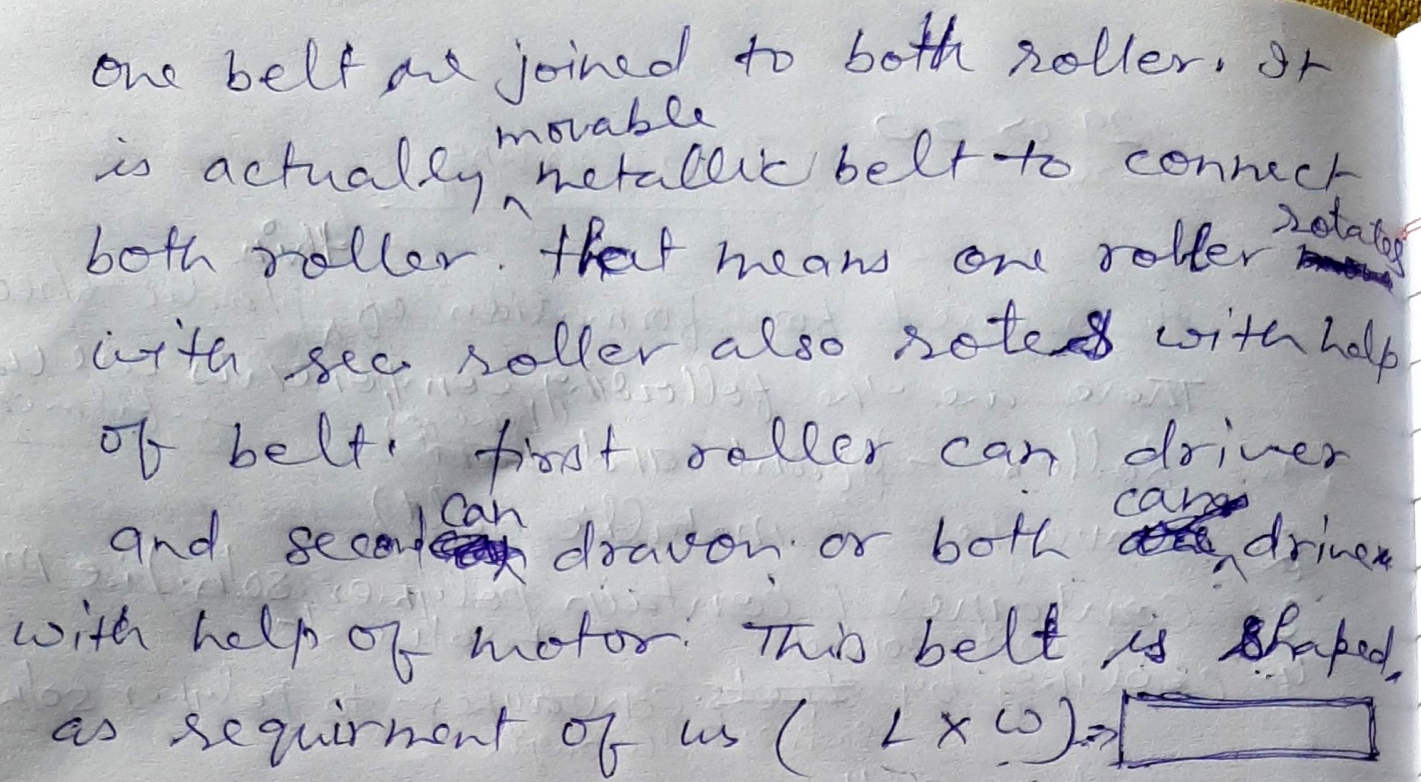 one belt are joined to both roller. It
is actually movable metallic belt to connect
both roller. that means one roller rotates
with sec roller also rotes with help
of belt. first roller can driver
and second can dravon. or both can driven
with help of motor. This belt is shaped,
as requirment of us ( L x W) =>